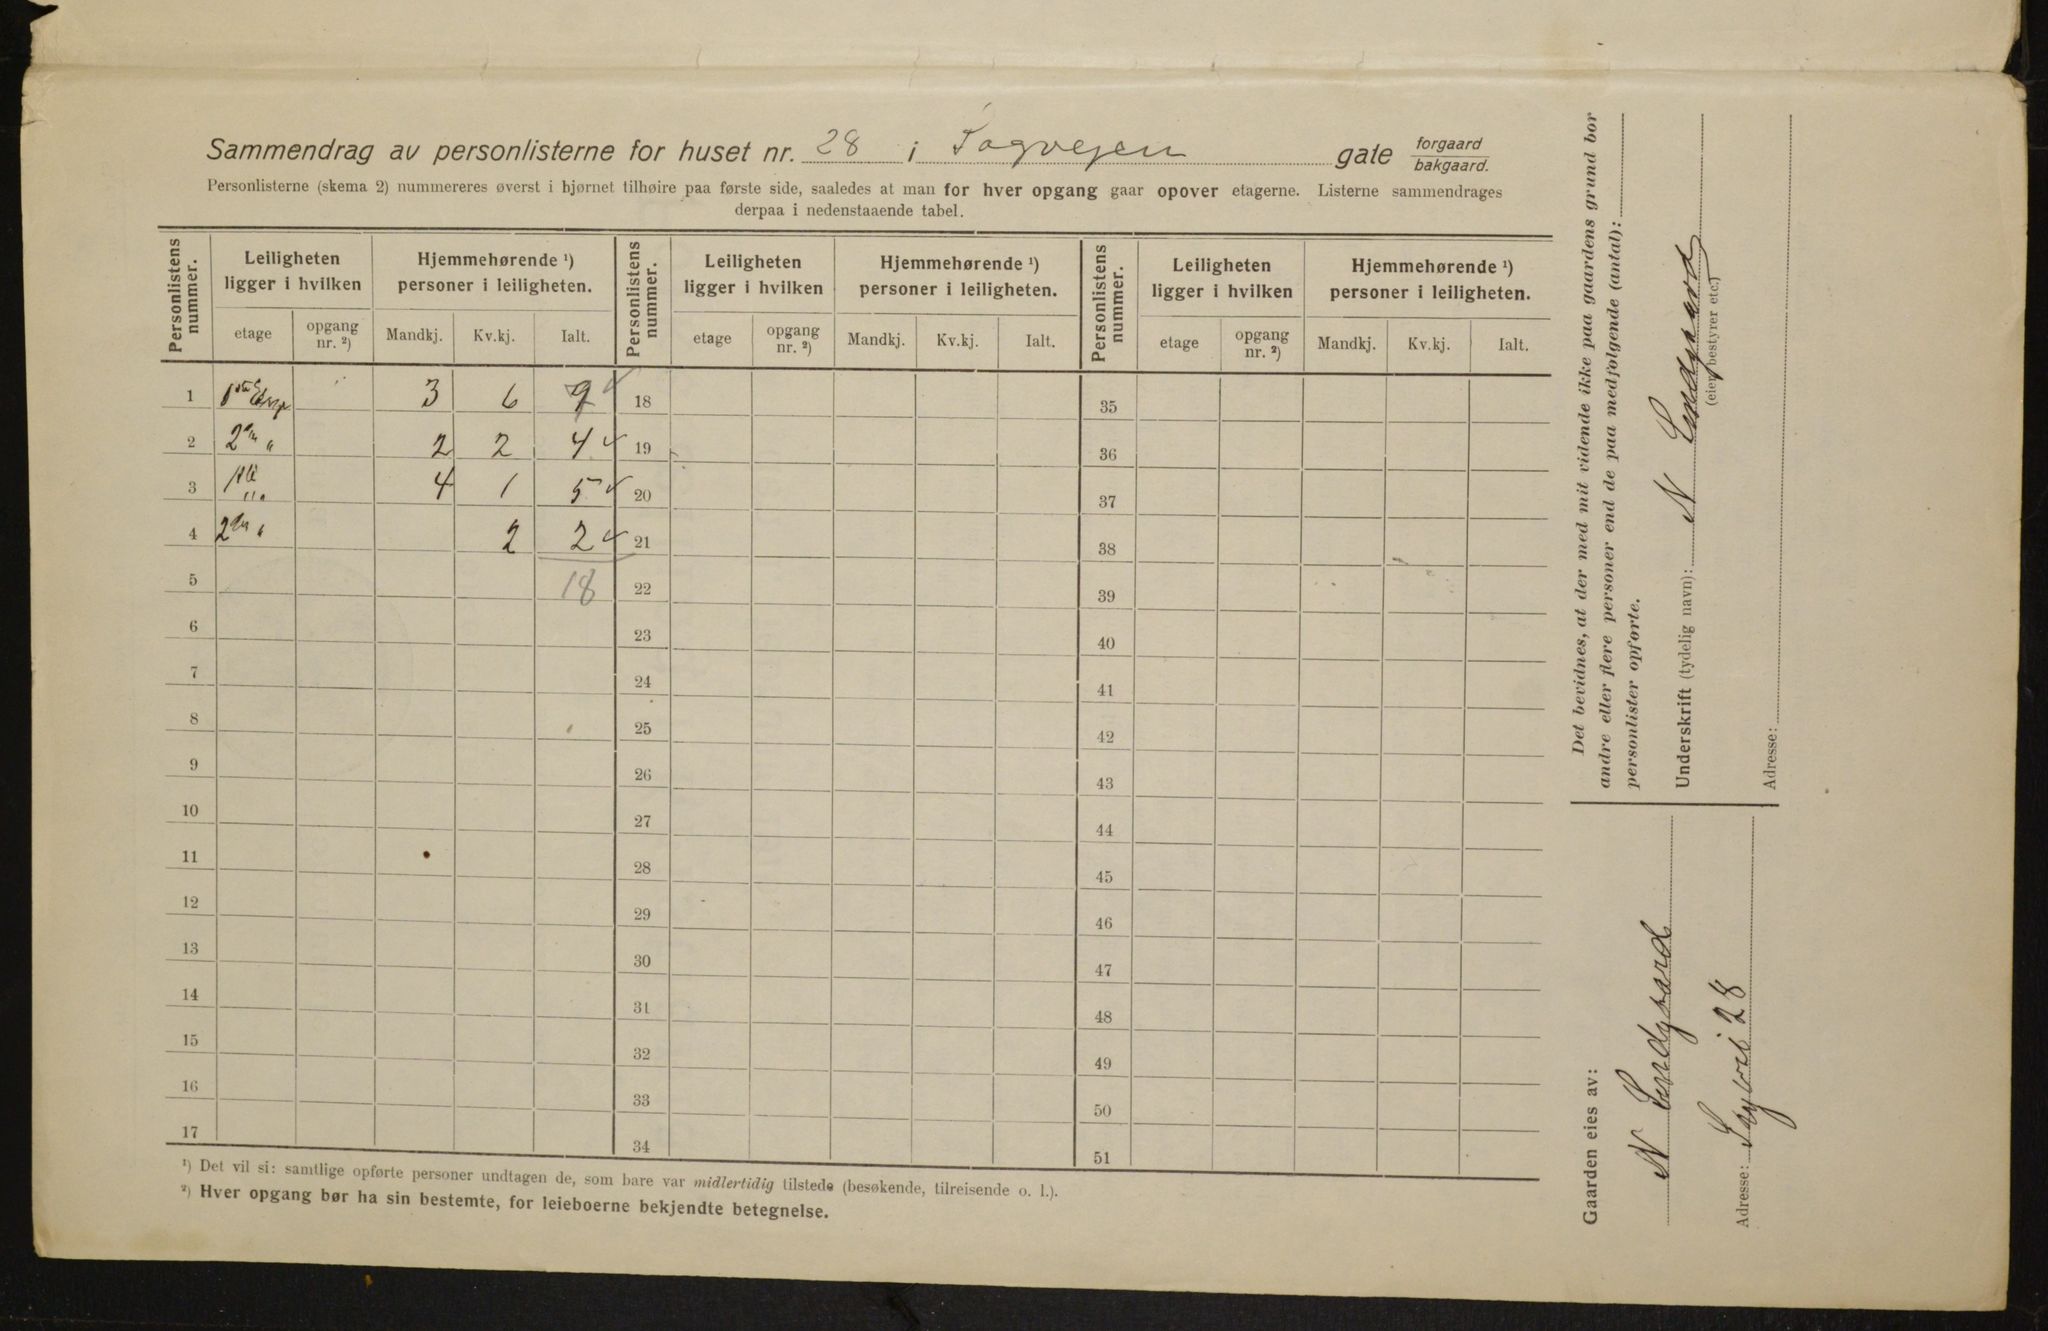 Sammendrag av personlisterne for huset nr. 28 i Sogvejen gate forgaard bakgaard.
Personlisterne (skema 2) nummereres øverst i hjørnet tilhøire paa første side, saaledes at man for hver opgang gaar opover etagerne. Listerne sammendrages
derpaa i nedenstaaende tabel.
Personlistens nummer. Leiligheten ligger i hvilken Hjemmehørende ¹) personer i leiligheten. Personlistens nummer. Leiligheten ligger i hvilken Hjemmehørende ¹) personer i leiligheten. Personlistens nummer. Leiligheten ligger i hvilken Hjemmehørende ¹) personer i leiligheten.
etage opgang nr. ²) Mandkj. Kv.kj. Ialt. etage opgang nr. ²) Mandkj. Kv.kj. Ialt. etage opgang nr. ²) Mandkj. Kv.kj. Ialt.
1 3 6 9 18 35
2 2 2 4 19 36
3 4 1 5 20 37
4 2 2 21 38
5 18 22 39
6 23 40
7 24 41
8 25 42
9 26 43
10 27 44
11 28 45
12 29 46
13 30 47
14 31 48
15 32 49
16 33 50
17 34 51
¹) Det vil si: samtlige opførte personer undtagen de, som bare var midlertidig tilstede (besøkende, tilreisende o. l.).
²) Hver opgang bør ha sin bestemte, for leieboerne bekjendte betegnelse.
Det bevidnes, at der med mit vidende ikke paa gaardens grund bor
andre eller flere personer end de paa medfølgende (antal):
personlister opførte.
Underskrift (tydelig navn): N
(eier, bestyrer etc.)
Adresse:
Gaarden eies av:
N
Adresse: 28